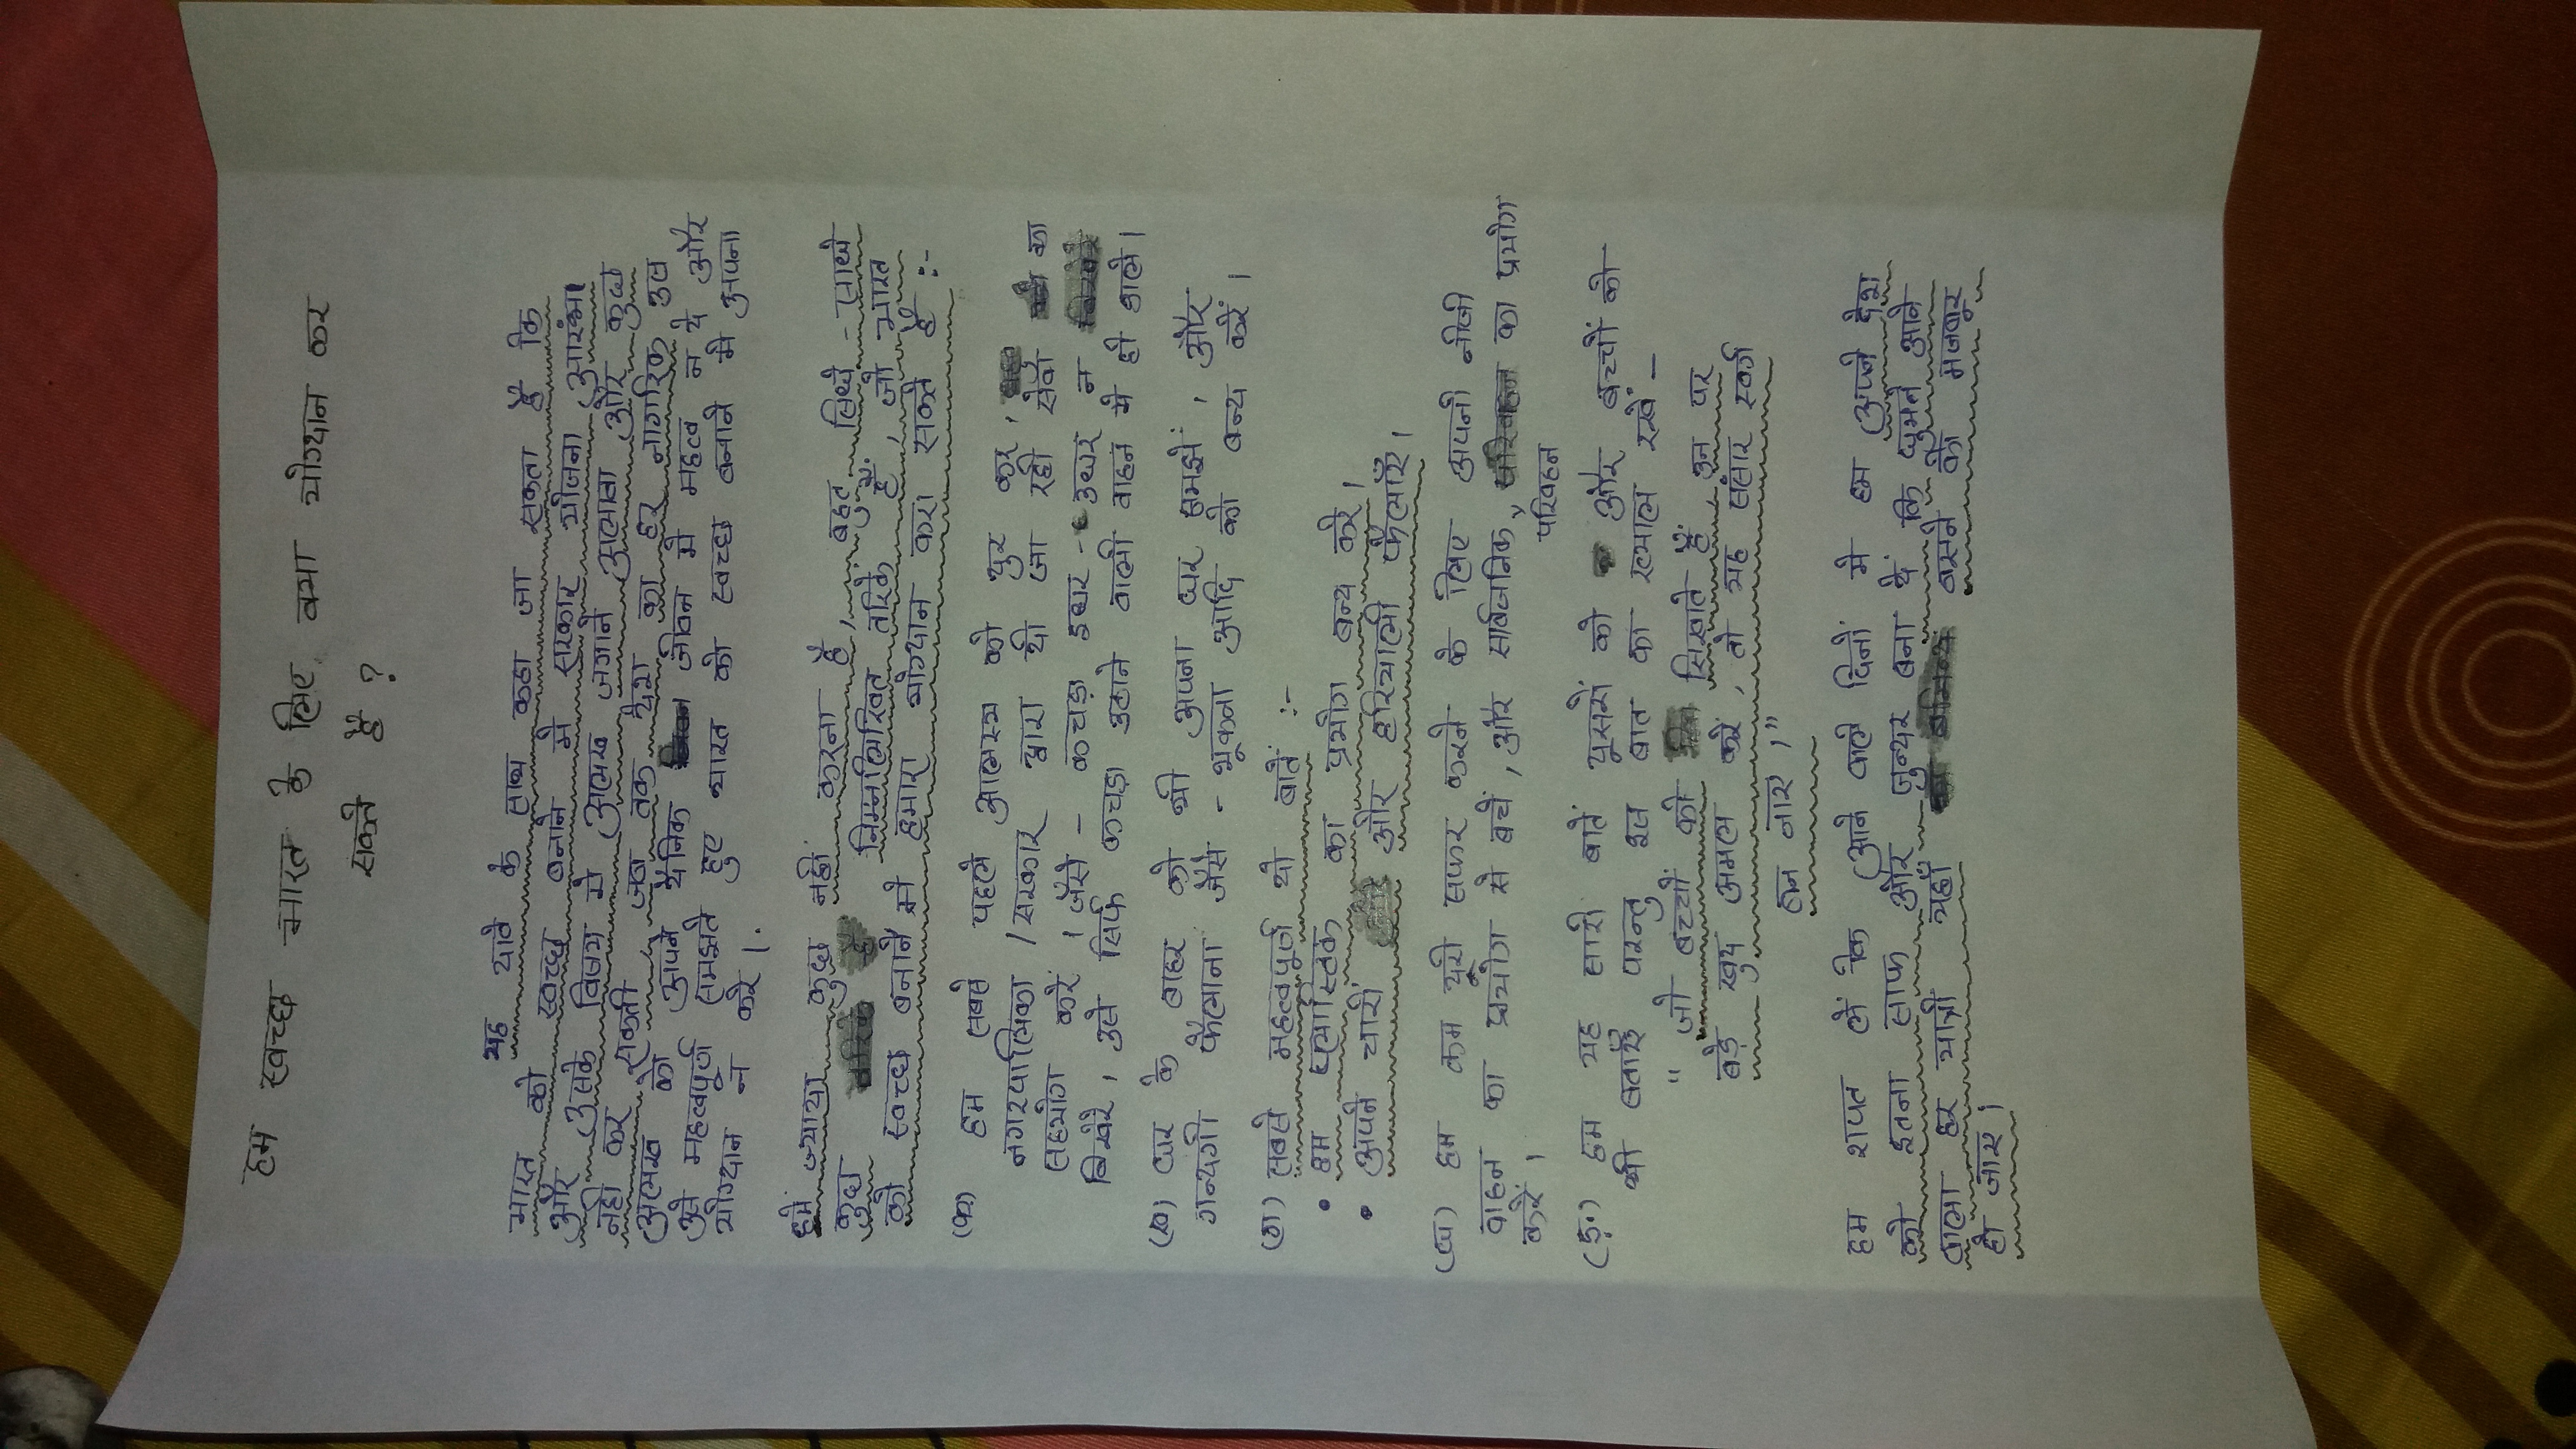 हम स्वच्छ भारत के लिए क्या योग्दान कर
सकते है ?
यह दावे के साथ कहा जा सकता है कि
भारत को स्वच्छ बनाने मे सरकार योजना आरंभ।
और उसके विषय मे अलख जगाने अलावा और कुछ
नही कर सकती। जब तक देश का हर नागरिक उस
अलख को अपने दैनिक जीवन मे महत्व न दे और
उसे महत्वपूर्ण समझते हुए भारत को स्वच्छ बनाने मे अपना
योग्दान न करे ।
हमे ज्यादा कुछ नही करना है, बहुत सिधे - साधे
कुछ निम्नलिखित तरिके है, जो भारत
को स्वच्छ बनाने मे हमारा योग्दान करा सक्ते है :-
(क) हम सबसे पहले आलस्य को दुर कर,
नगरपालिका / सरकार द्वारा दी जा रही सेवा का
सहयोग करे । जैसे - कचड़ा इधर - उधर न
बिखेरे, उसे सिर्फ कचड़ा उठाने वाली वाहन मे ही डाले।
(ख) घर के बाहर को भी अपना घर समझें, और
गन्दगी फैलाना जैसे - थूकना आदि को बन्द करें ।
(ग) सबसे महत्वपूर्ण दो बातें :-
• हम प्लास्तिक का प्रयोग बन्द करे।
• अपने चारों और हरियाली फैलाएँ।
(घ) हम कम दूरी सफर करने के लिए अपनी नीजी
वाहन का प्रयोग से बचें, और सार्वजनिक परिवहन का प्रयोग
करें ।
(ड़.) हम यह सारी बातें दूसरों को और बच्चों को
भी बताएँ परन्तु इस बात का ख्याल रखें -
" जो बच्चों को सिखाते हैं, उन पर
बड़े खुद अमल करे, तो यह संसार स्वर्ग
बन जाए ।"
हम शपत लें कि आने वाले दिनों मे हम अपने देश
को इतना साफ और सुन्दर बना दें कि घुमने आने
वाला हर यात्री यहाँ बसने को मजबूर
हो जाए ।